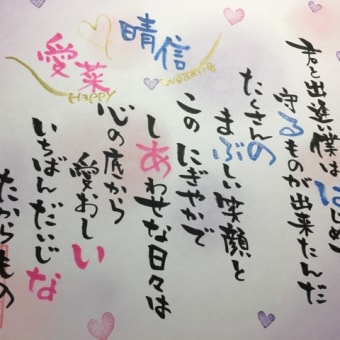 晴信
愛菜
Happy
Wedding
君と出逢い僕ははじめて
守るものが出来たんだ
たくさんの
まぶしい笑顔と
このにぎやかで
しあわせな日々は
心の底から
愛おしい
いちばんだいじな
たからもの